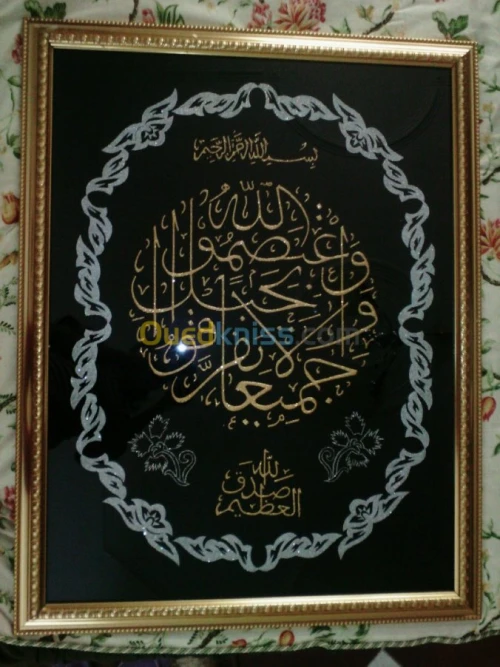 بسم الله الرحمن الرحيم
واعتصموا بحبل الله جميعا ولا تفرقوا
صدق الله العظيم
Ouedkniss.com